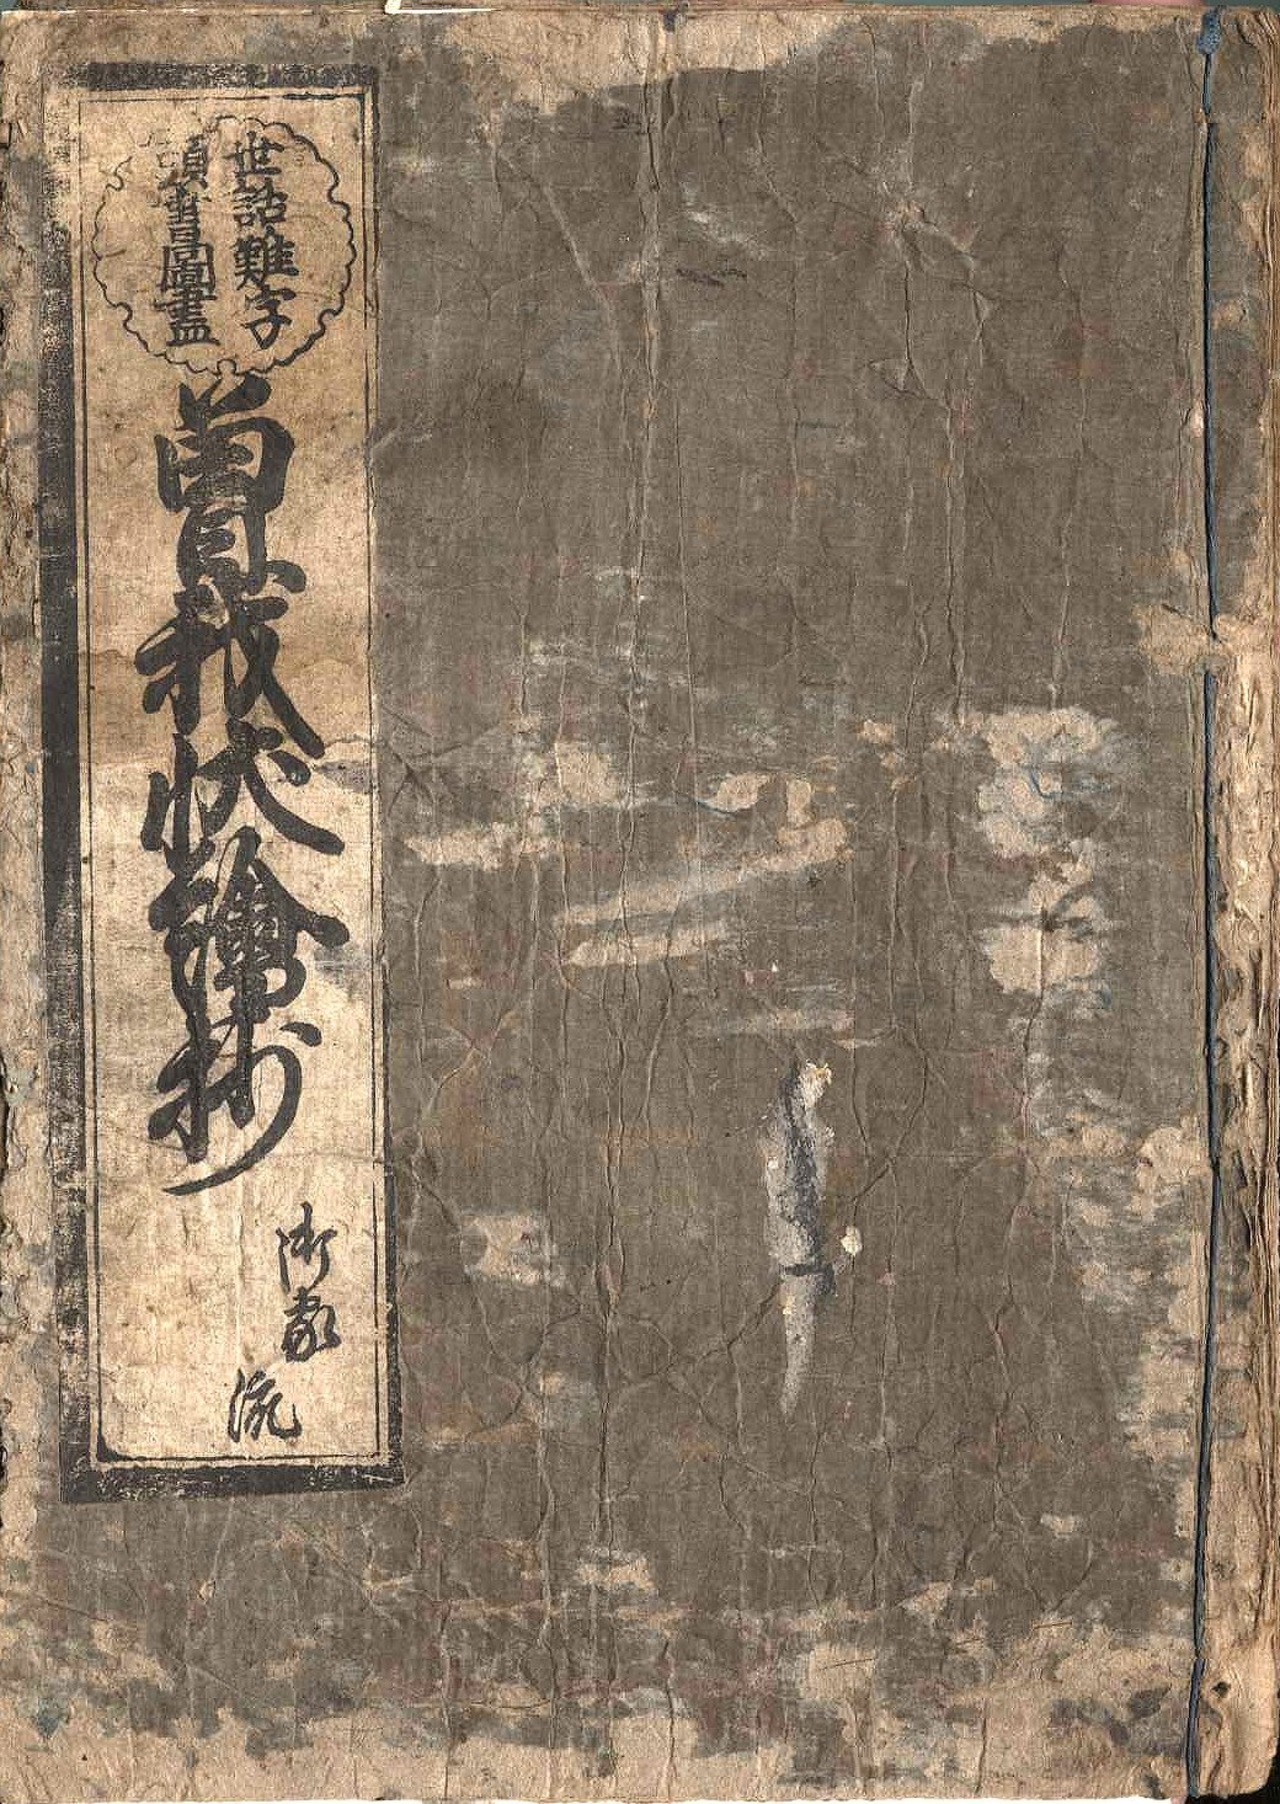 世話難字
頭書圖畫
曽我状繪抄
御家流